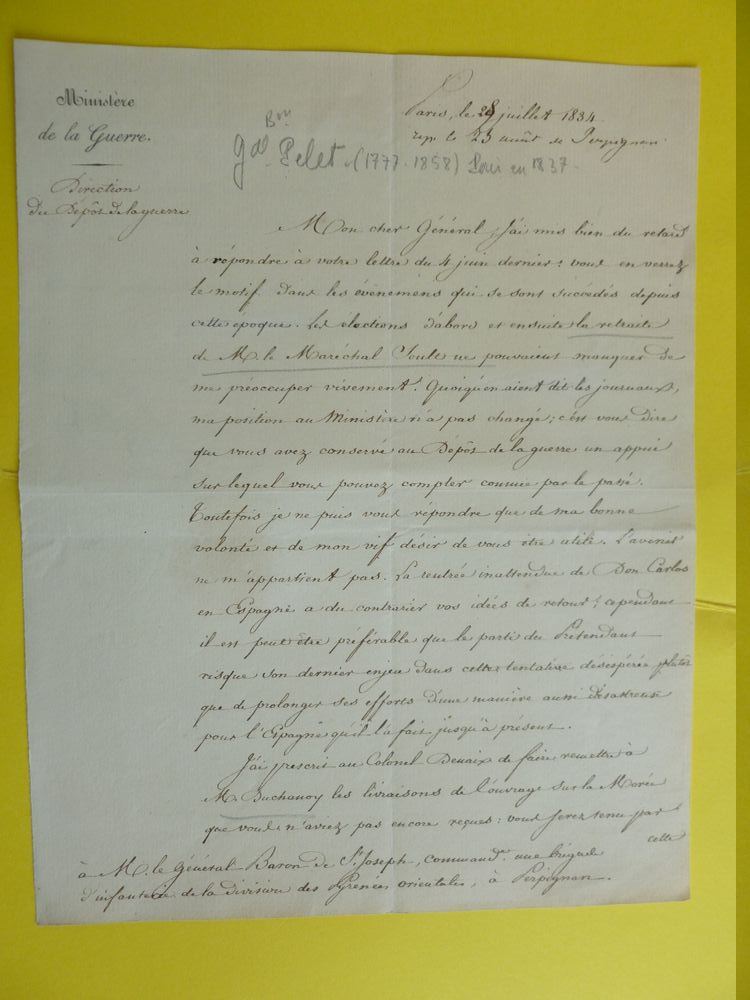 Ministère
de la Guerre.
Direction
du Dépôt de la guerre
Paris, le 28 juillet 1834.
rep. le 23 août de Perpignan.
Bon
Gal Pelet (1777-1858) Pair en 1837.
Mon cher Général, J'ai mis bien du retard
à répondre à votre lettre du 4 juin dernier: vous en verrez
le motif dans les événemens qui se sont succédés depuis
cette époque. Les élections d'abord et ensuite la retraite
de M. le Maréchal Soult ne pouvaient manquer de
me préoccuper vivement. Quoiqu'en aient dit les journaux,
ma position au Ministère n'a pas changé; c'est vous dire
que vous avez conservé au Dépôt de la guerre un appui
sur lequel vous pouvez compter comme par le passé.
Toutefois je ne puis vous répondre que de ma bonne
volonté et de mon vif désir de vous être utile. L'avenir
ne m'appartient pas. La rentrée inattendue de Don Carlos
en Espagne a du contrarier vos idées de retour: cependant
il est peut être préférable que le parti du Prétendant
risque son dernier enjeu dans cette tentative désespérée plutôt
que de prolonger ses efforts d'une manière aussi désastreuse
pour l'Espagne qu'il l'a fait jusqu'à présent.
J'ai prescrit au Colonel Denaix de faire remettre à
M. Buchanoy les livraisons de l'ouvrage sur la Morée
que vous n'aviez pas encore reçues: vous serez tenu par
cette
à M. le Général Baron de St. Joseph, command.t une brigade
d'infanterie de la division des Pyrénées orientales, à Perpignan.